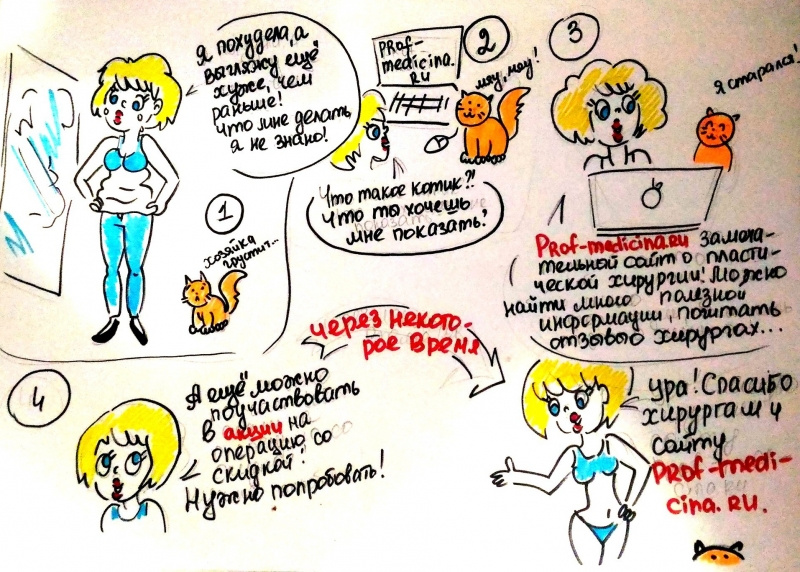 Я похудела, а
выгляжу ещё
хуже, чем
раньше!
Что мне делать
я не знаю!
1
хозяйка
грустит...
2
PROF-
medicina.
RU
мяу, мяу!
Что такое котик?!
Что ты хочешь
мне показать?
3
Я старался!
PROF-medicina.RU замеча-
тельный сайт о пласти-
ческой хирургии! Можно
найти много полезной
информации, почитать
отзывы о хирургах...
4
А ещё можно
поучаствовать
в акции на
операцию со
скидкой!
Нужно попробовать!
через некото-
рое время
Ура! Спасибо
хирургам и
сайту
PROF-medi-
cina.RU.